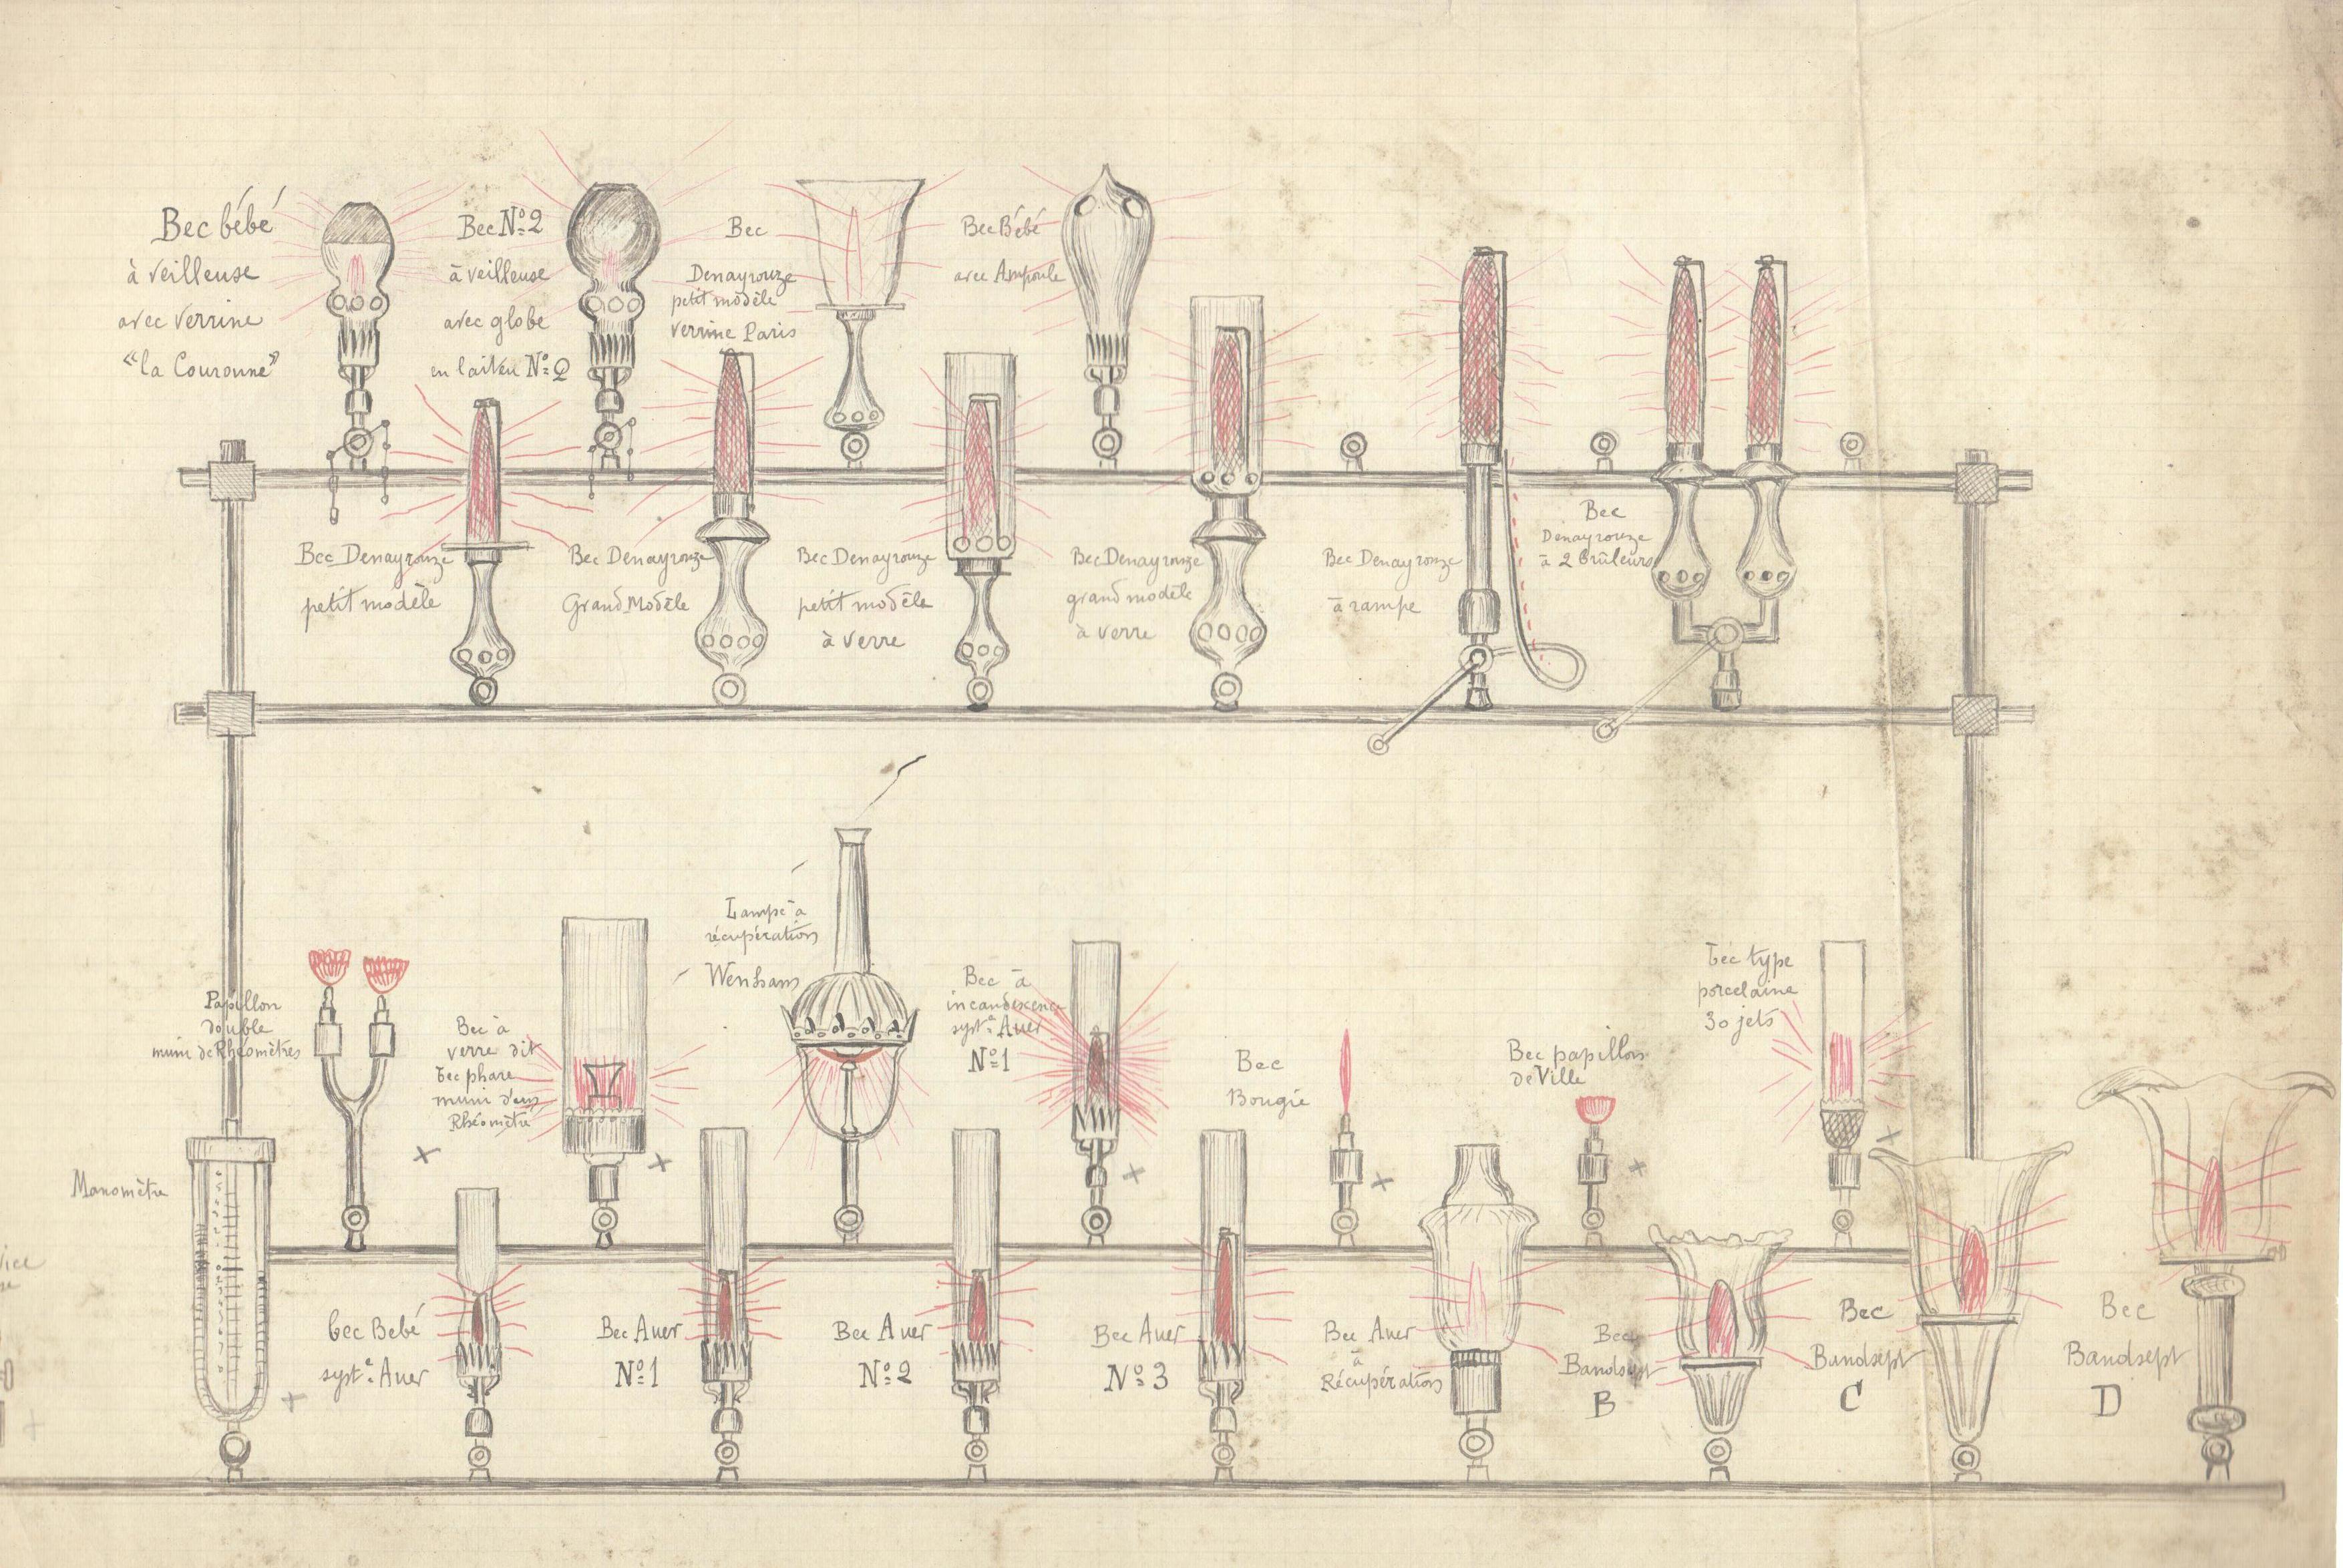 Bec bébé
à veilleuse
avec verrine
"la Couronne"
Bec Nº 2
à veilleuse
avec globe
en laiton Nº 2
Bec
Denayrouze
petit modèle
verrine Paris
Bec Bébé
avec Ampoule
Bec Denayrouze
petit modèle
Bec Denayrouze
Grand Modèle
Bec Denayrouze
petit modèle
à verre
Bec Denayrouze
grand modèle
à verre
Bec Denayrouze
à rampe
Bec
Denayrouze
à 2 brûleurs
Papillon
double
muni de Rhéomètres
Bec à
verre dit
bec phare
muni d'un
Rhéomètre
Lampe à
récupération
Wenham
Bec à
incandescence
syst.e Auer
Nº 1
Bec
Bougie
Bec papillon
de Ville
bec type
porcelaine
30 jets
Manomètre
bec Bébé
syst.e Auer
Bec Auer
Nº 1
Bec Auer
Nº 2
Bec Auer
Nº 3
Bec Auer
à
Récupération
Bec
Bandsept
B
Bec
Bandsept
C
Bec
Bandsept
D